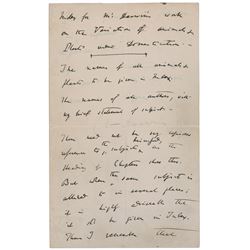 Index for Mr Darwin's work
on the Variation of animals &
Plants under Domestication —
The names of all animals &
plants to be given in Index.
The names of all authors, with
very brief statement of subject —
There need not be any
reference to the subjects, in the
Heading of Chapters
But when the same subject is
alluded to in several places,
it is highly
it shd be given in Index.
Then I remember that